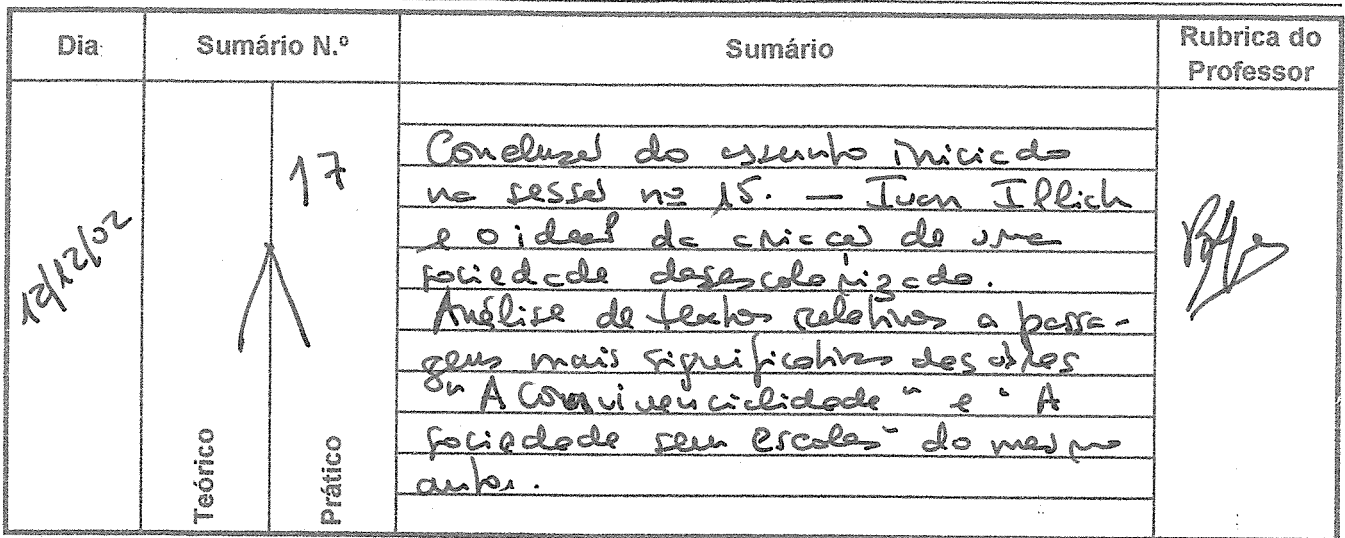 Dia Sumário N.º Sumário Rubrica do
Professor
12/12/02
17
Conclusão do assunto iniciado
na sessão nº 15. — Ivan Illich
e o ideal da criação de uma
sociedade desescolarizada.
Análise de textos relativos a passa-
gens mais significativas das obras
"A Convivencialidade" e "A
sociedade sem escolas" do mesmo
autor.
Teórico
Prático